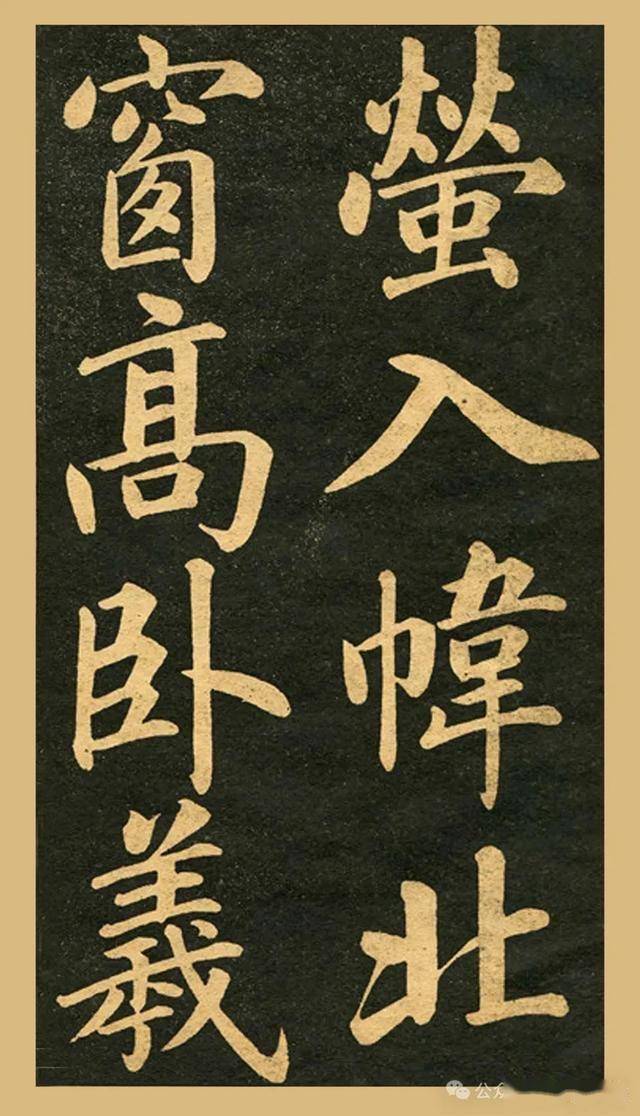 螢入幃北
窗高卧羲
公众